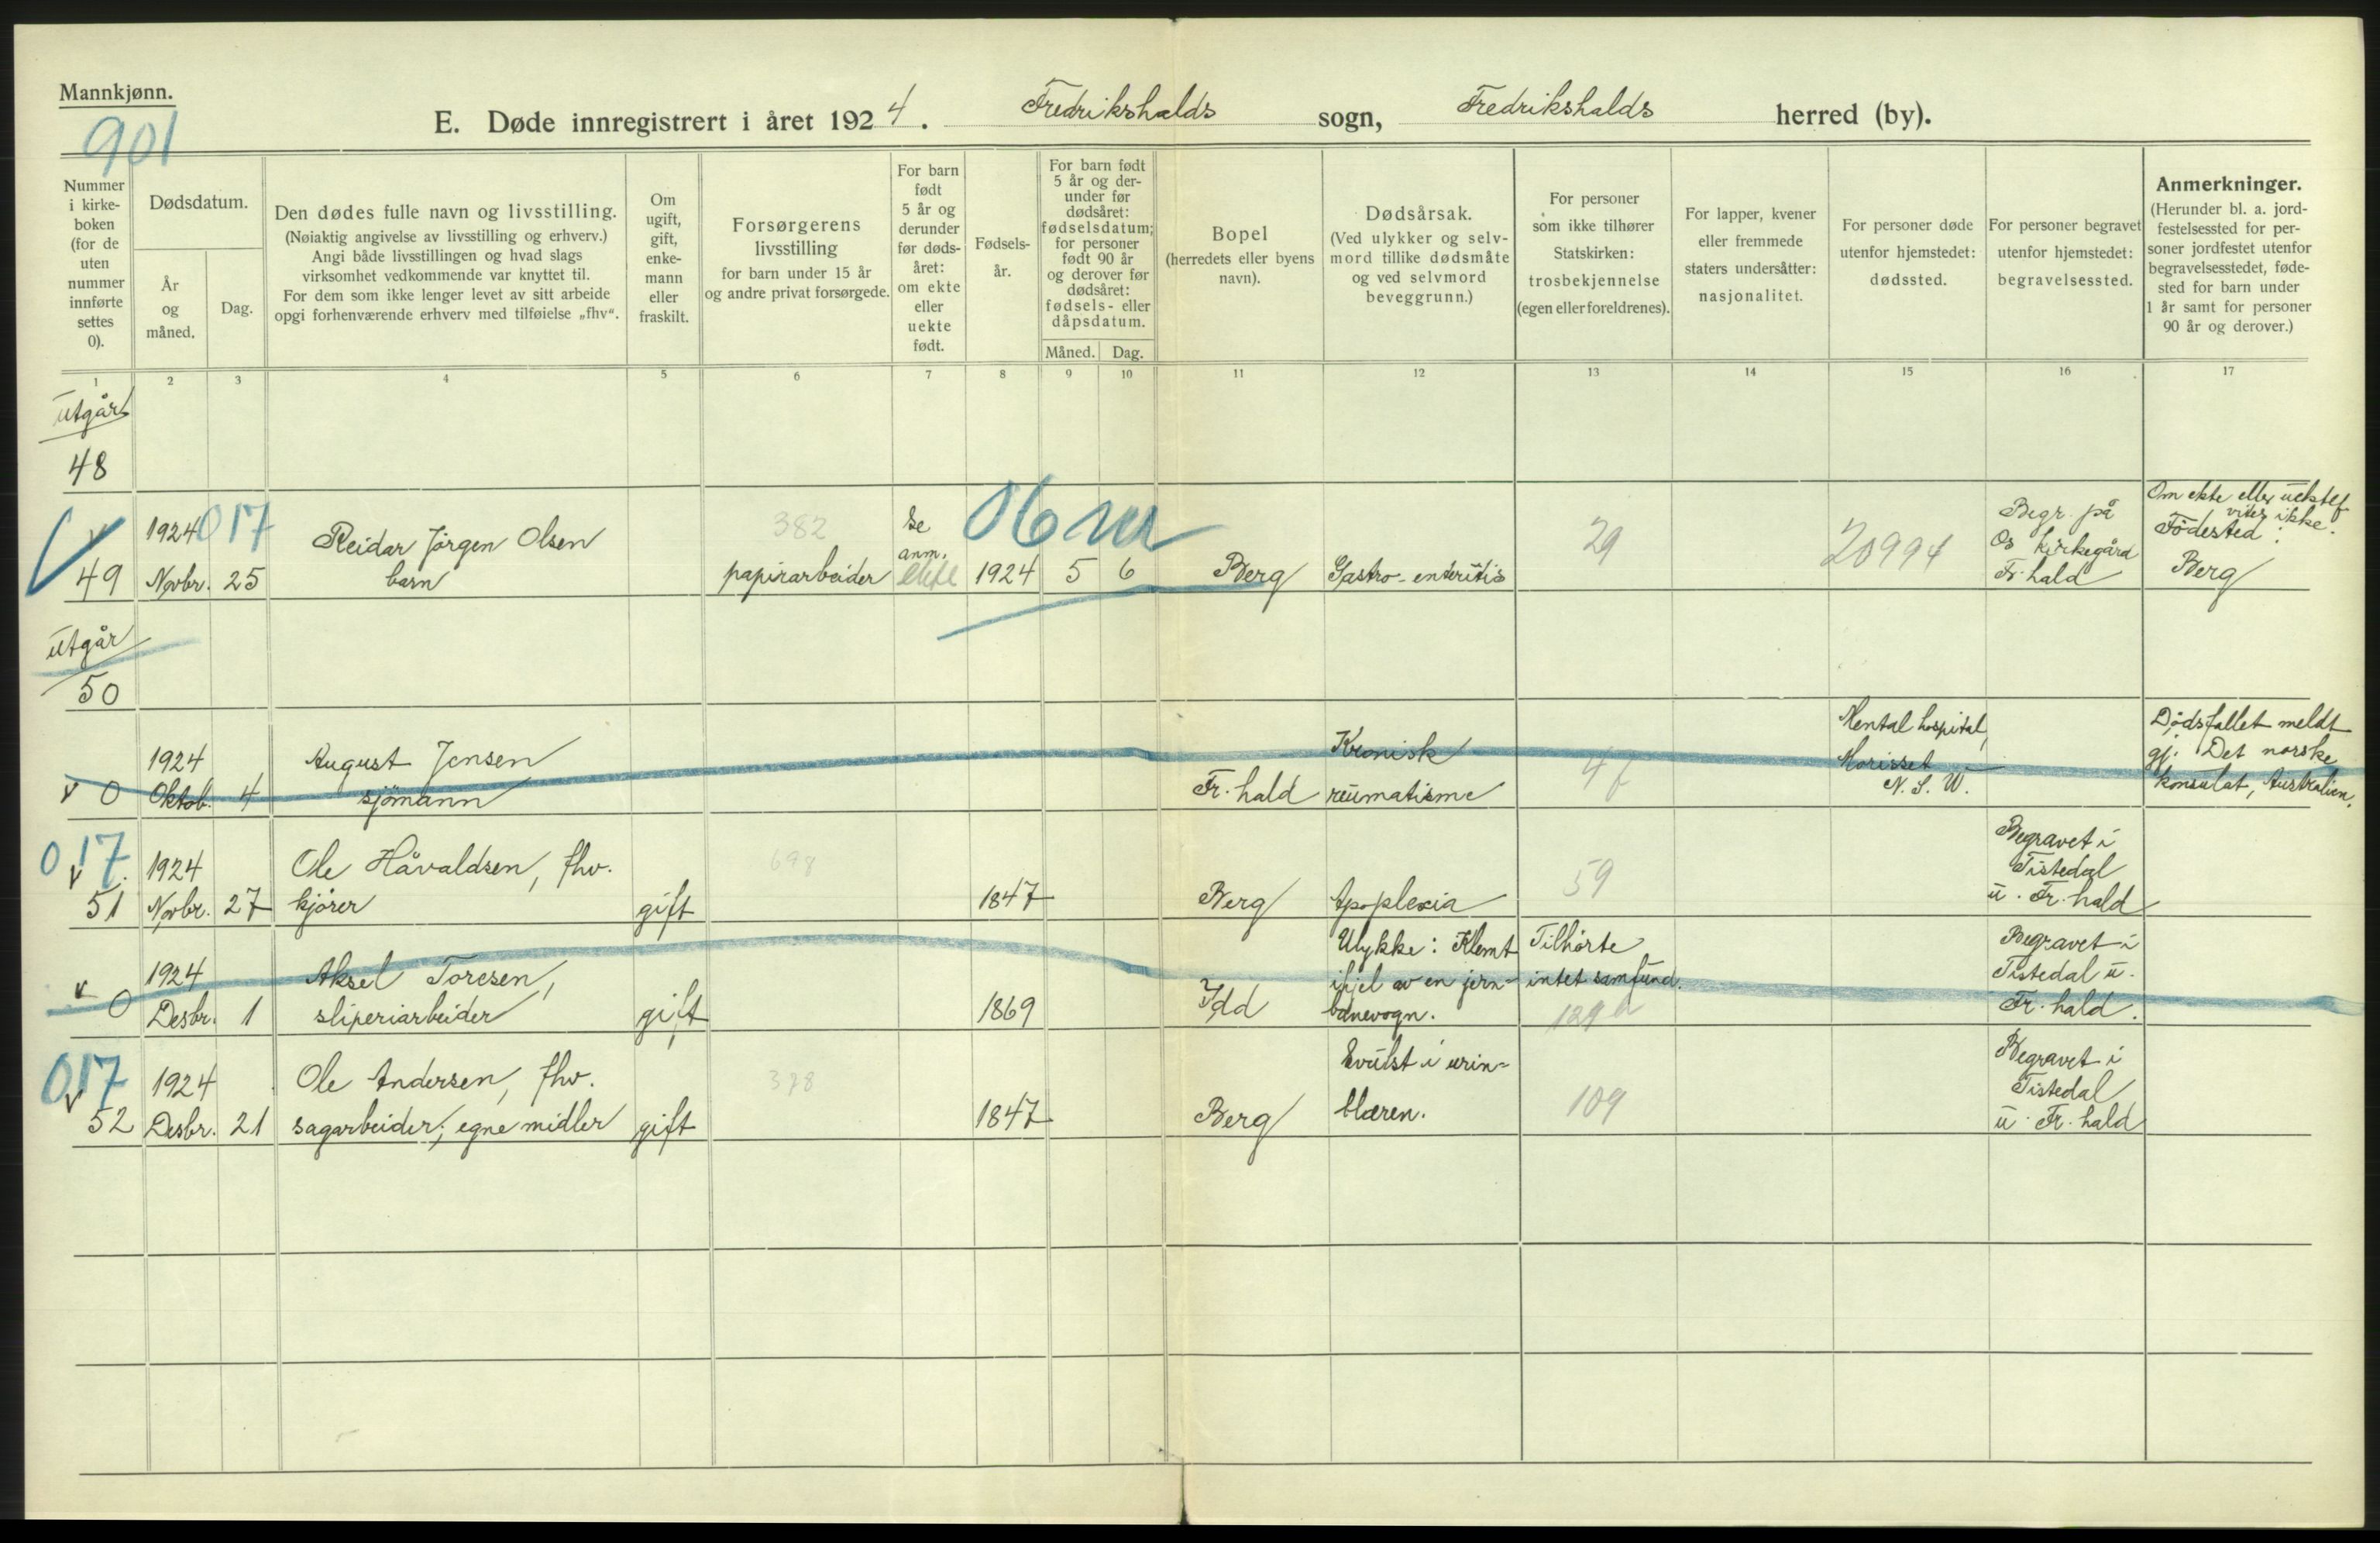 Mannkjønn.
901
E. Døde innregistrert i året 1924. Fredrikshalds sogn, Fredrikshalds herred (by).
Nummer i kirke-boken (for de uten nummer innførte settes 0).
Dødsdatum.
År og måned.
Dag.
Den dødes fulle navn og livsstilling.
(Nøiaktig angivelse av livsstilling og erhverv.)
Angi både livsstillingen og hvad slags
virksomhet vedkommende var knyttet til.
For dem som ikke lenger levet av sitt arbeide
opgi forhenværende erhverv med tilføielse „fhv“.
Om ugift, gift, enke-mann eller fraskilt.
Forsørgerens livsstilling
for barn under 15 år
og andre privat forsørgede.
For barn født 5 år og derunder før døds-året: om ekte eller uekte født.
Fødsels-år.
For barn født 5 år og der-under før dødsåret: fødselsdatum; for personer født 90 år og derover før dødsåret: fødsels- eller dåpsdatum.
Måned. Dag.
Bopel
(herredets eller byens navn).
Dødsårsak.
(Ved ulykker og selv-mord tillike dødsmåte og ved selvmord beveggrunn.)
For personer som ikke tilhører Statskirken: trosbekjennelse (egen eller foreldrenes).
For lapper, kvener eller fremmede staters undersåtter: nasjonalitet.
For personer døde utenfor hjemstedet: dødssted.
For personer begravet utenfor hjemstedet: begravelsessted.
Anmerkninger.
(Herunder bl. a. jord-festelsessted for per-soner jordfestet utenfor begravelsesstedet, føde-sted for barn under 1 år samt for personer 90 år og derover.)
1 2 3 4 5 6 7 8 9 10 11 12 13 14 15 16 17
Utgår
48
v 49 1924 Novbr. 25 017 Reidar Jörgen Olsen barn 382 papirarbeider se anm. 1924 5 6 Berg Gastro-enteritis 29 20994 Begr. på Os kirkegård Fr.hald Om ekte eller uektef. vites ikke. Födested: Berg
Utgår
50
v 0 1924 Oktob. 4 August Jensen sjömann Fr.hald Kronisk reumatisme 4f Mental hospital, Morisset N.S.W. Dødsfallet meldt gj. Det norske konsulat, Australien.
017 v
51 1924 Novbr. 27 Ole Håvaldsen, fhv. kjörer gift 698 1847 Berg Apoplexia 59 Begravet i Tistedal u. Fr.hald
v 0 1924 Desbr. 1 Aksel Toresen, sliperiarbeider gift 1869 Idd Ulykke: Klemt ihjel av en jern-banevogn. Tilhörte intet samfund. Begravet i Tistedal u. Fr.hald.
017 v
52 1924 Desbr. 21 Ole Andersen, fhv. sagarbeider; egne midler gift 378 1847 Berg Svulst i urin-blæren. 109 Begravet i Tistedal u. Fr.hald